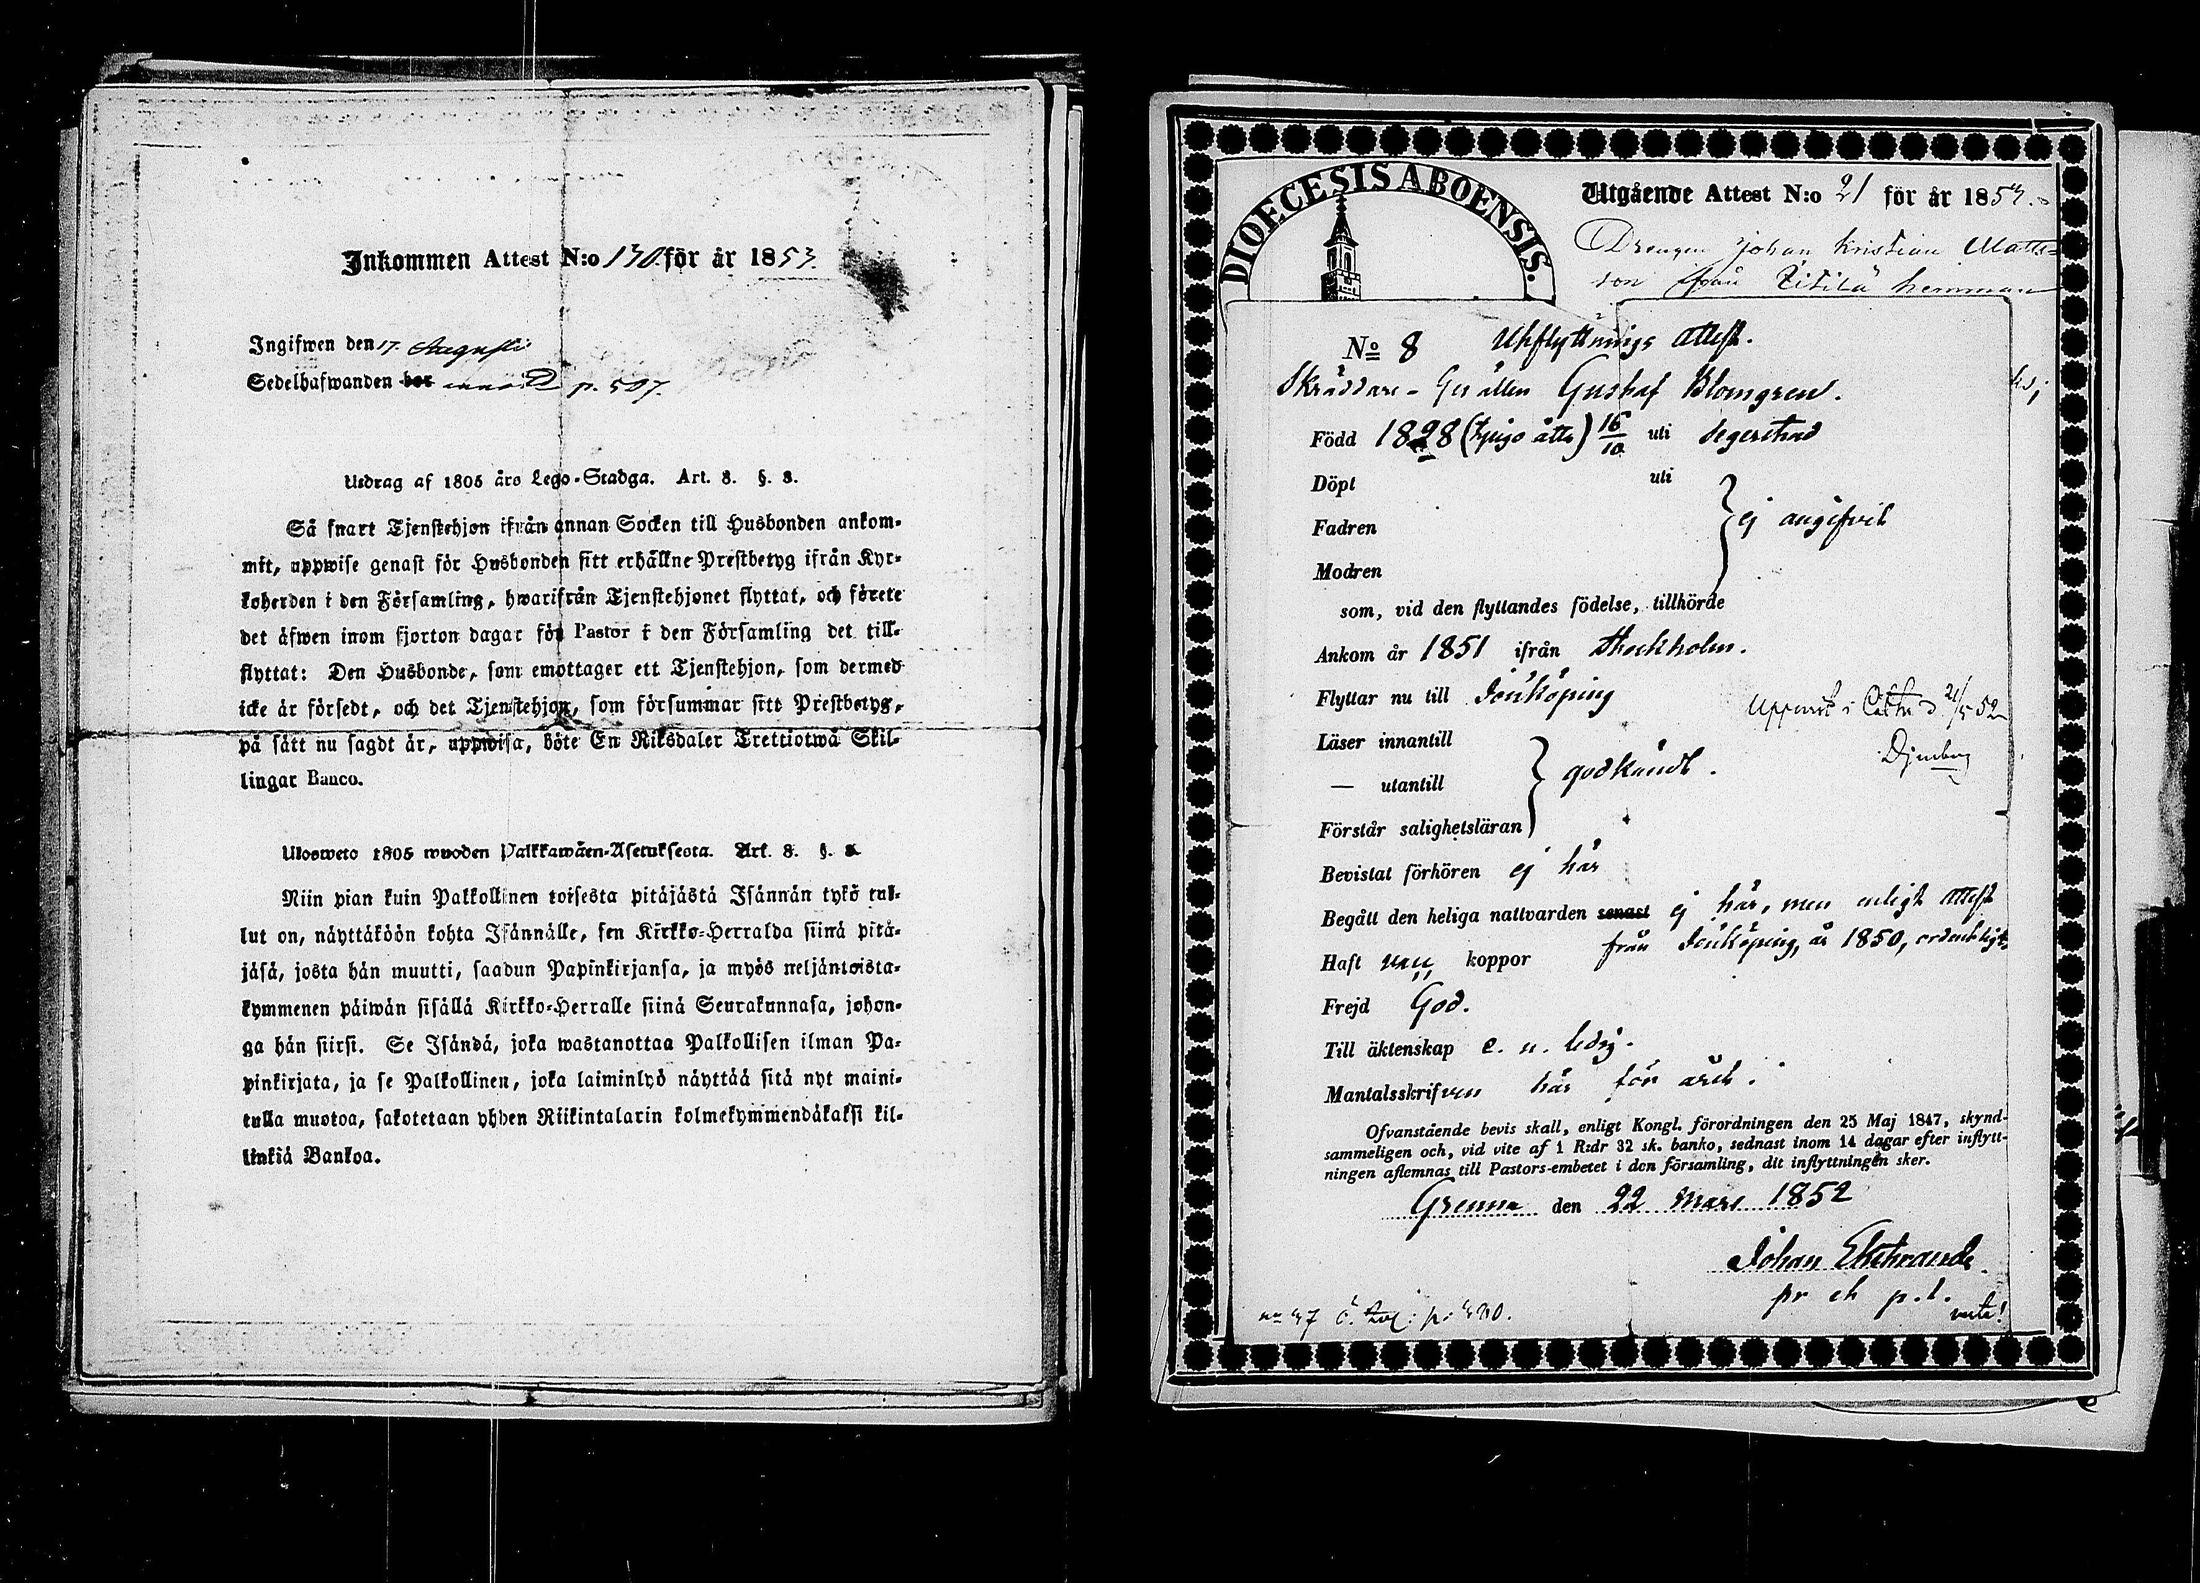 Inkommen Attest N:o 130 för år 1853.
Ingifwen den 17. Augusti
Sedelhafwanden bor p. 507.
Utdrag af 1805 års Lego-Stadga. Art. 8. §. 8.
Så snart Tjenstehjon ifrån annan Socken till Husbonden ankom-
mit, uppwise genast för Husbonden sitt erhållne Prestbetyg ifrån Kyr-
koherden i den Församling, hwarifrån Tjenstehjonet flyttat, och förete
det äfwen inom fjorton dagar för Pastor i den Församling det till-
flyttat: Den Husbonde, som emottager ett Tjenstehjon, som dermed
icke är försedt, och det Tjenstehjon, som försummar sitt Prestbetyg,
på sätt nu sagdt är, uppwisa, böte En Riksdaler Trettiotwå Skil-
lingar Banco.
Ulosweto 1805 wuoden Palkkawäen-Asetuksesta. Art. 8. §. 8.
Niin pian kuin Palkollinen toisesta pitäjästä Isännän tykö tul-
lut on, näyttäköön kohta Isännälle, sen Kirkko-Herralda siinä pitä-
jäsä, josta hän muutti, saadun Papinkirjansa, ja myös neljäntoista-
kymmenen päiwän sisällä Kirkko-Herralle siinä Seurakunnasa, johon-
ga hän siirsi. Se Isändä, joka wastanottaa Palkollisen ilman Pa-
pinkirjata, ja se Palkollinen, joka laiminlyö näyttää sitä nyt maini-
tulla muotoa, sakotetaan yhden Riikintalarin kolmekymmendäkaksi kil-
linkiä Bankoa.
DIOECESIS ABOENSIS.
Utgående Attest N:o 21 för år 1853.
Drengen Johan Kristian Matts-
son från hemman
No 8 Utflyttnings attest.
Skräddare-Gesällen Gustaf Blomgren.
Född 1828 (tjugo åtta) 16/10 uti Segerstad
Döpt uti
Fadren ej angifvit
Modren
som, vid den flyttandes födelse, tillhörde
Ankom år 1851 ifrån Stockholm.
Flyttar nu till Jönköping
Uppvist i 21/5 52
Läser innantill
— utantill godkändt.
Förstår salighetsläran
Bevistat förhören ej här
Begått den heliga nattvarden senast ej här, men enligt attest
från Jönköping, år 1850, ordentligt.
Haft koppor
Frejd God.
Till äktenskap e. u. ledig.
Mantalsskrifven här för året.
Ofvanstående bevis skall, enligt Kongl. förordningen den 25 Maj 1847, skynd-
sammeligen och, vid vite af 1 R:dr 32 sk. banko, sednast inom 14 dagar efter inflytt-
ningen aflemnas till Pastors-embetet i den församling, dit inflyttningen sker.
Grenna den 22 Mars 1852
Johan Ekstrand
p.l.